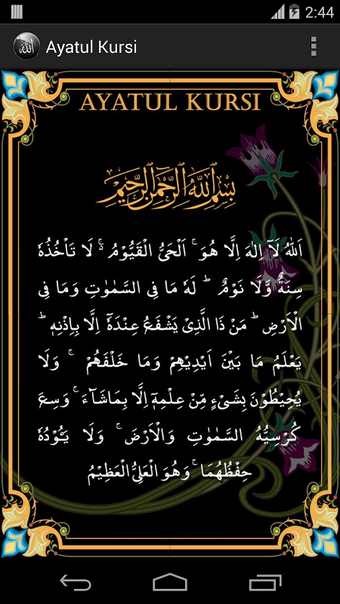 2:44
Ayatul Kursi
AYATUL KURSI
بِسْمِ اللّٰهِ الرَّحْمٰنِ الرَّحِيْمِ
اَللّٰهُ لَآ اِلٰهَ اِلَّا هُوَ ۚ اَلْحَىُّ الْقَيُّوْمُ ۚ لَا تَاْخُذُهٗ
سِنَةٌ وَّلَا نَوْمٌ ؕ لَهٗ مَا فِى السَّمٰوٰتِ وَمَا فِى
الْاَرْضِ ؕ مَنْ ذَا الَّذِىْ يَشْفَعُ عِنْدَهٗٓ اِلَّا بِاِذْنِهٖ ؕ
يَعْلَمُ مَا بَيْنَ اَيْدِيْهِمْ وَمَا خَلْفَهُمْ ۚ وَلَا
يُحِيْطُوْنَ بِشَىْءٍ مِّنْ عِلْمِهٖٓ اِلَّا بِمَاشَآءَ ۚ وَسِعَ
كُرْسِيُّهُ السَّمٰوٰتِ وَالْاَرْضَ ۚ وَلَا يَـُٔوْدُهٗ
حِفْظُهُمَا ۚ وَهُوَ الْعَلِىُّ الْعَظِيْمُ